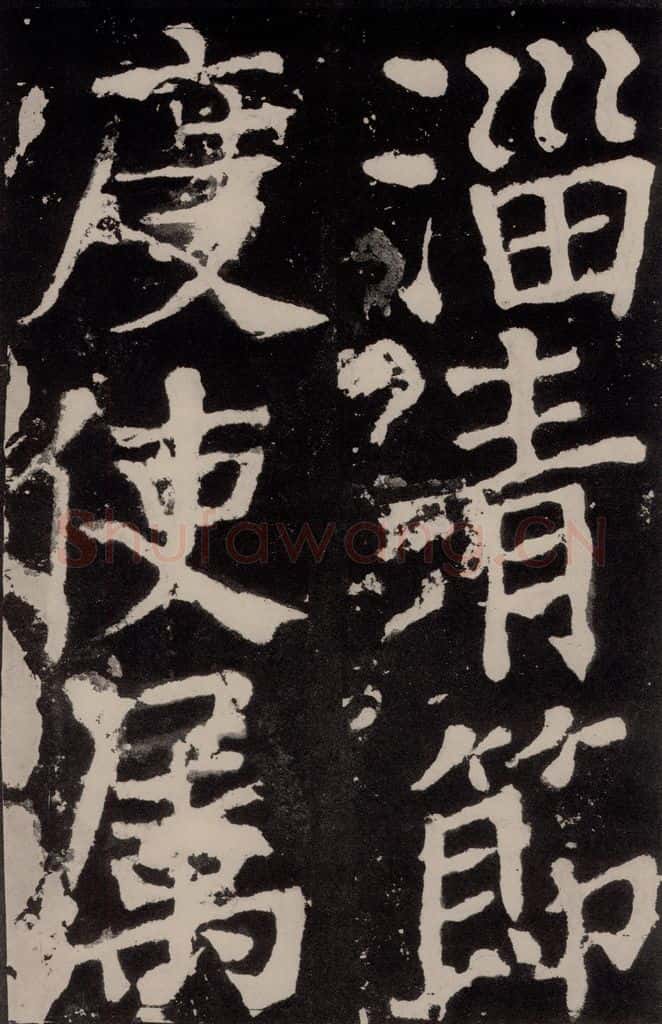 淄青節
度使属
Shufawang.CN